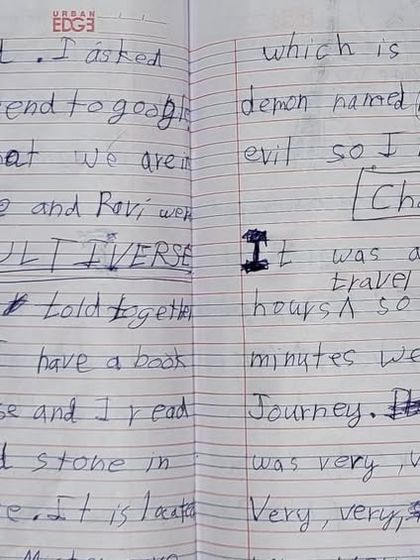 URBAN
EDGE
. I asked
end to google
at we are in
and Ravi wer
ULTIVERSE
told together
have a book
se and I read
d stone in
e. It is locate
which is
demon named
evil so I
Cha
It was a
travel
hours ʌ so
minutes we
Journey.
was very, v
Very, very,